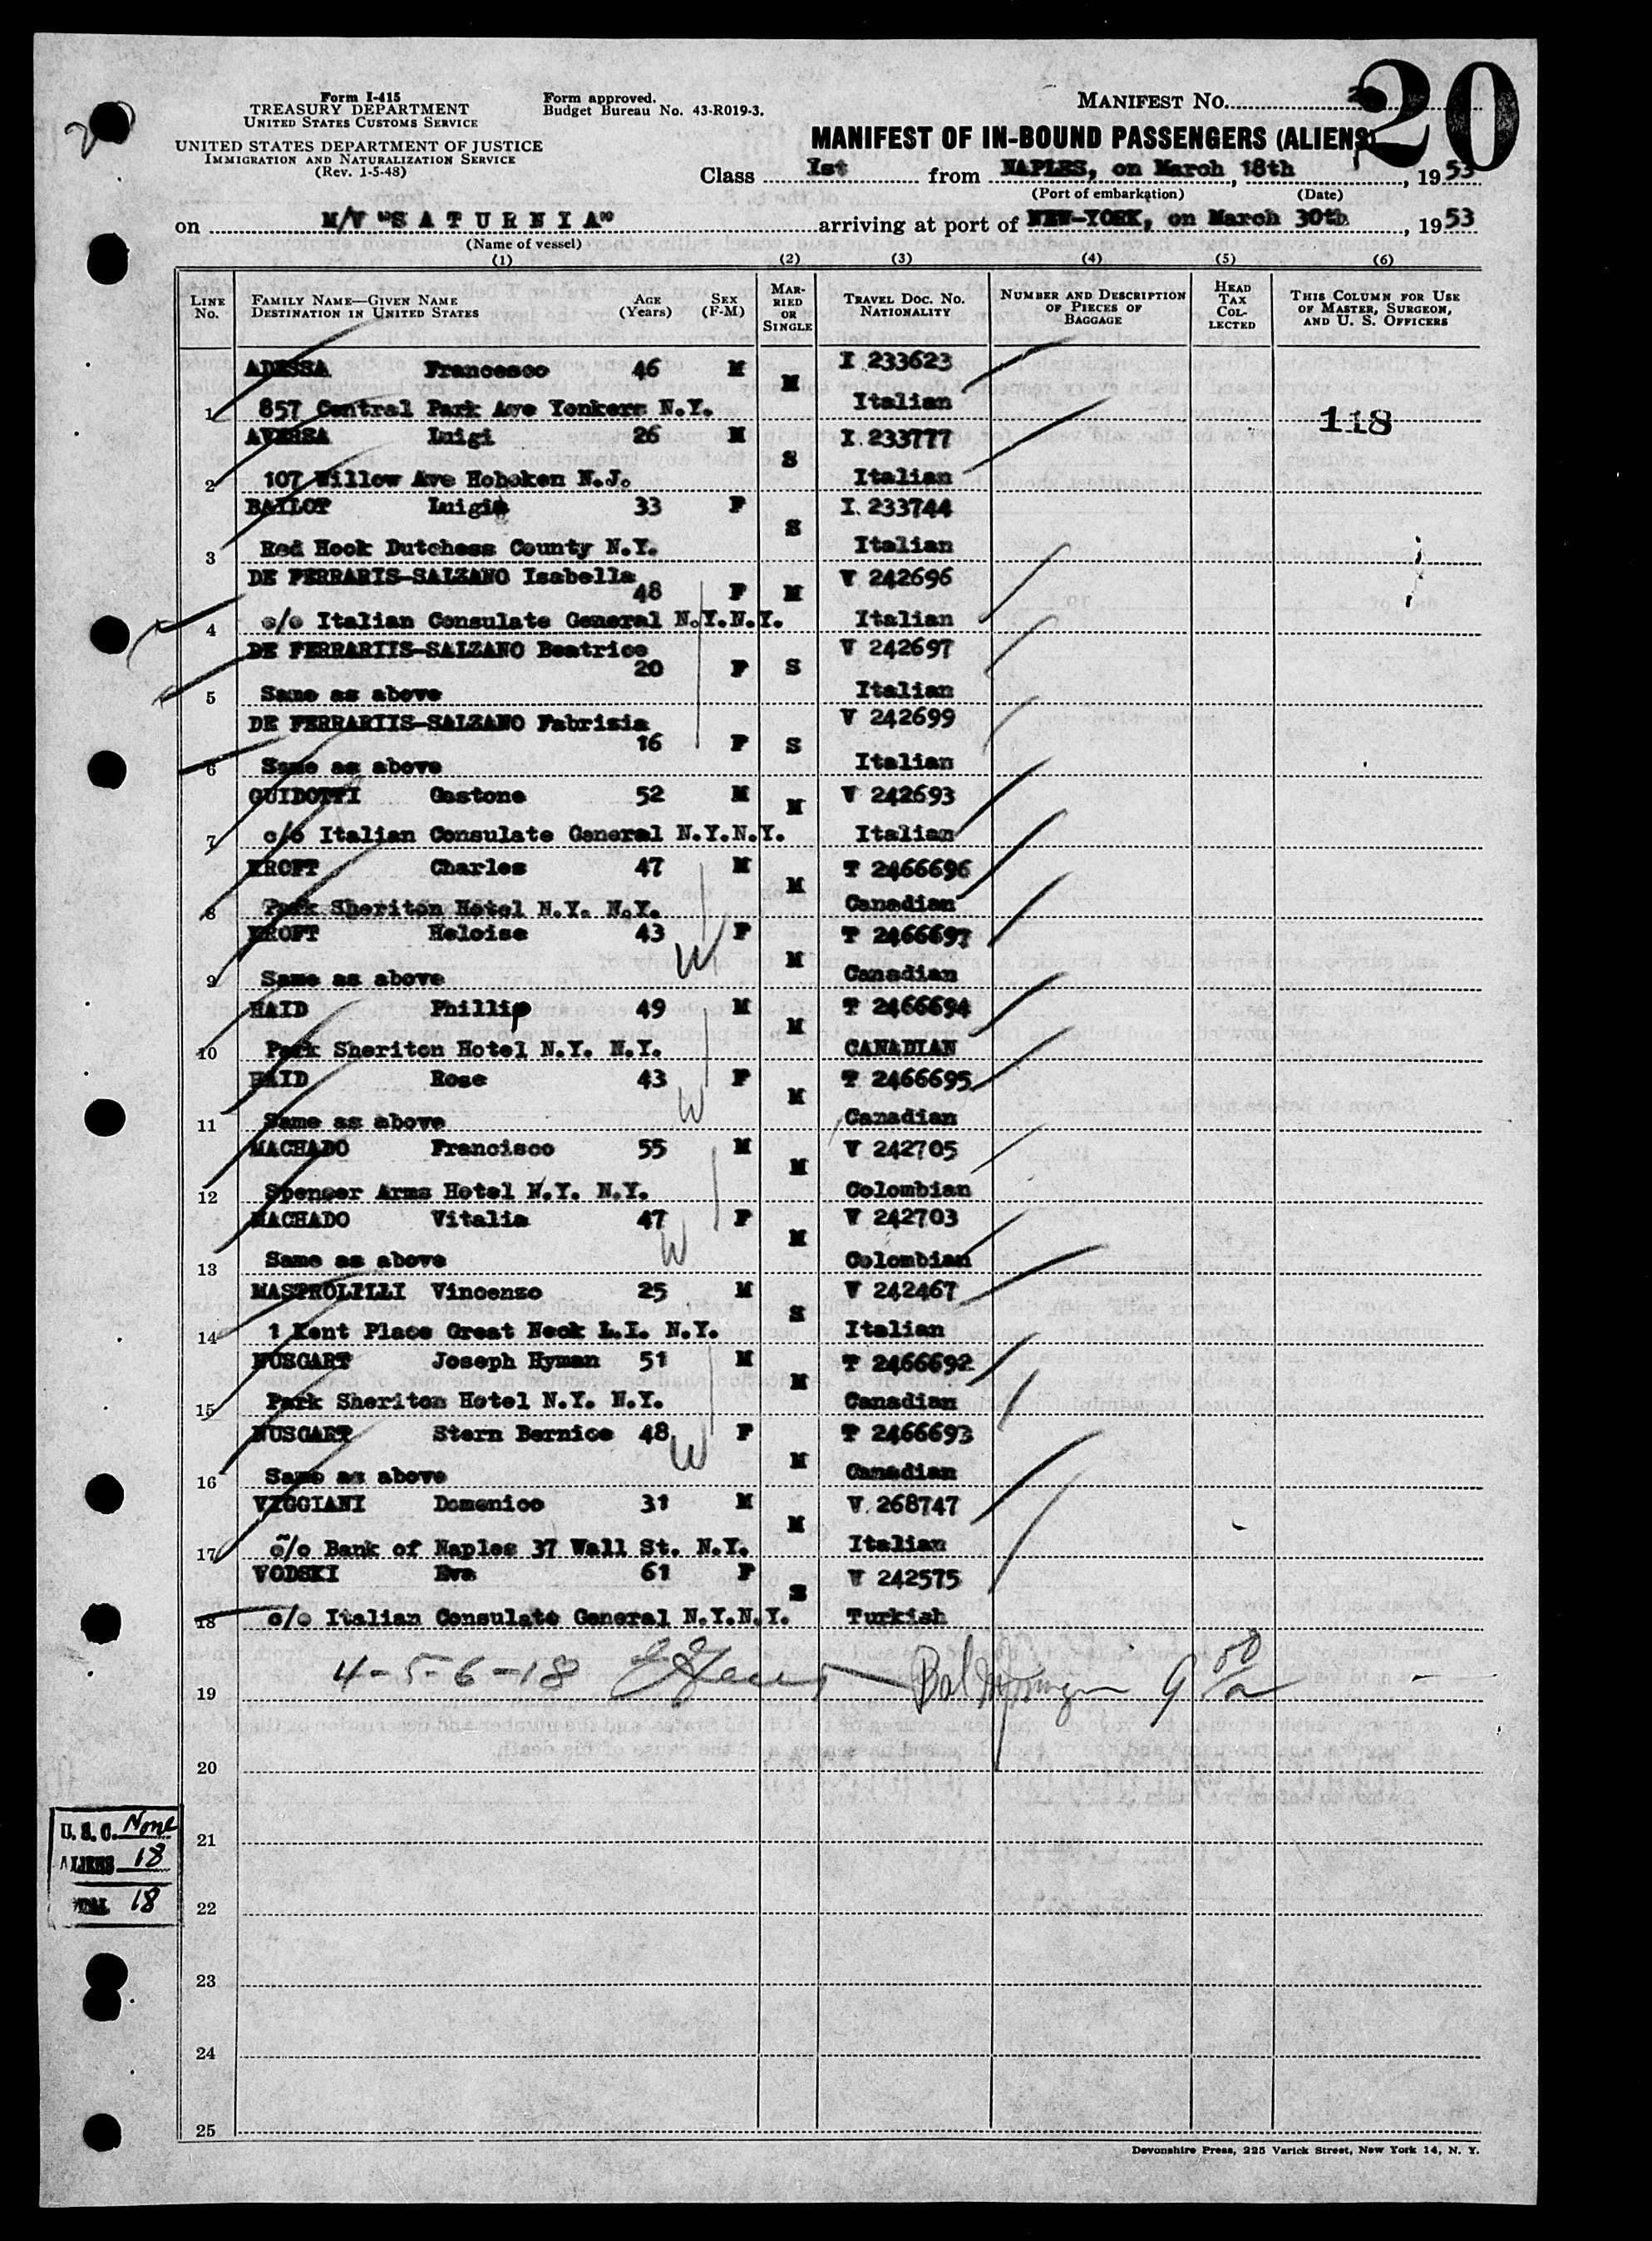 20
Form I-415
TREASURY DEPARTMENT
UNITED STATES CUSTOMS SERVICE
UNITED STATES DEPARTMENT OF JUSTICE
IMMIGRATION AND NATURALIZATION SERVICE
(Rev. 1-5-48)
Form approved.
Budget Bureau No. 43-R019-3.
MANIFEST NO.
MANIFEST OF IN-BOUND PASSENGERS (ALIENS)
Class Ist from NAPLES, on March 18th, 1953
(Port of embarkation) (Date)
on M/V "S A T U R N I A" arriving at port of NEW-YORK, on March 30th, 1953
(Name of vessel)
(1) (2) (3) (4) (5) (6)
LINE No. FAMILY NAME—GIVEN NAME DESTINATION IN UNITED STATES AGE (Years) SEX (F-M) MARRIED OR SINGLE TRAVEL DOC. NO. NATIONALITY NUMBER AND DESCRIPTION OF PIECES OF BAGGAGE HEAD TAX COLLECTED THIS COLUMN FOR USE OF MASTER, SURGEON, AND U. S. OFFICERS
ADESSA Francesco 46 M M I 233623
1 857 Central Park Ave Yonkers N.Y. Italian
118
AVERSA Luigi 26 M S I.233777
2 107 Willow Ave Hoboken N.J. Italian
BAILOT Luigia 33 F S I.233744
3 Red Hook Dutchess County N.Y. Italian
DE FERRARIS-SALZANO Isabella 48 F M V 242696
4 c/o Italian Consulate General N.Y.N.Y. Italian
DE FERRARIIS-SALZANO Beatrice 20 F S V 242697
5 Same as above Italian
DE FERRARIIS-SALZANO Fabrizia 16 F S V 242699
6 Same as above Italian
GUIDOTTI Gastone 52 M M V 242693
7 c/o Italian Consulate General N.Y.N.Y. Italian
KROFT Charles 47 M M T 2466696
8 Park Sheriton Hotel N.Y. N.Y. Canadian
KROFT Heloise 43 W F M T 2466697
9 Same as above Canadian
HAID Phillip 49 M M T 2466694
10 Park Sheriton Hotel N.Y. N.Y. CANADIAN
HAID Rose 43 W F M T 2466695
11 Same as above Canadian
MACHADO Francisco 55 M M V 242705
12 Spencer Arms Hotel N.Y. N.Y. Colombian
MACHADO Vitalia 47 W F M V 242703
13 Same as above Colombian
MASTROLILLI Vincenzo 25 M S V 242467
14 1 Kent Place Great Neck L.I. N.Y. Italian
NUSGART Joseph Hyman 51 M M T 2466692
15 Park Sheriton Hotel N.Y. N.Y. Canadian
NUSGART Stern Bernice 48 W F M T 2466693
16 Same as above Canadian
VIGGIANI Domenico 31 M M V.268747
17 c/o Bank of Naples 37 Wall St. N.Y. Italian
VODSKI Eva 61 F S V 242575
18 c/o Italian Consulate General N.Y.N.Y. Turkish
4-5-6-18 Bal
19
20
U. S. C. None
21
ALIENS 18
TOTAL 18
22
23
24
25
Devonshire Press, 225 Varick Street, New York 14, N. Y.